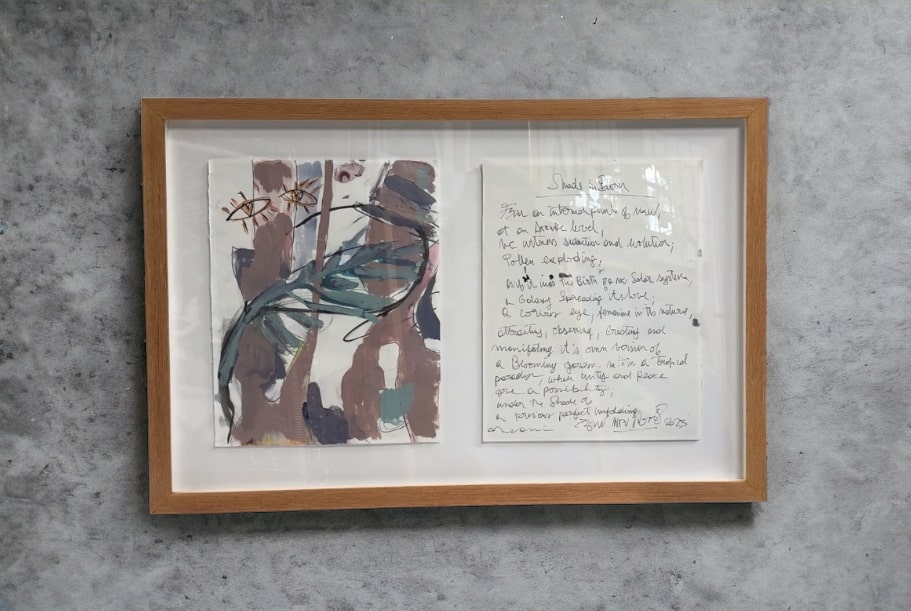 From an Internal point of view,
at an Atomic level,
we witness seduction and evolution,
Pollen exploding,
as if it was the Birth of a new Solar system,
a Galaxy Spreading its love,
a curious eye, feminine in its nature,
attracting, observing, trusting and
manifesting it's own version of
a Blooming garden in a tropical
paradise, where unity and Peace
are a possibility,
under the Shade of
a curious perfect
2023